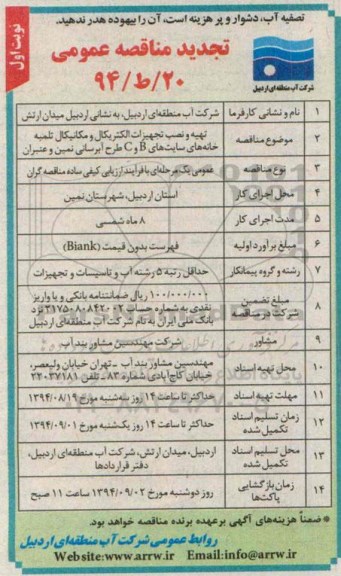 تصفیه آب، دشوار و پر هزینه است، آن را بیهوده هدر ندهید.
نوبت اول
تجدید مناقصه عمومی
۹۴/ط/۲۰
شرکت آب منطقه‌ای اردبیل
۱ نام و نشانی کارفرما شرکت آب منطقه‌ای اردبیل، به نشانی اردبیل میدان ارتش
۲ موضوع مناقصه تهیه و نصب تجهیزات الکتریکال و مکانیکال تلمبه
خانه‌های سایت‌های B و C طرح آبرسانی نمین و عنبران
۳ نوع مناقصه عمومی یک مرحله‌ای با فرآیند ارزیابی کیفی ساده مناقصه گران
۴ محل اجرای کار استان اردبیل، شهرستان نمین
۵ مدت اجرای کار ۸ ماه شمسی
۶ مبلغ برآورد اولیه فهرست بدون قیمت (Biank)
۷ رشته و گروه پیمانکار حداقل رتبه ۵ رشته آب و تاسیسات و تجهیزات
۸ مبلغ تضمین
شرکت در مناقصه ۱۰۰/۰۰۰/۰۰۰ ریال ضمانتنامه بانکی و یا واریز
نقدی به شماره حساب ۳۱۷۵۰۸۰۸۴۲۰۰۲ نزد
بانک ملی ایران به نام شرکت آب منطقه‌ای اردبیل
۹ مشاور شرکت مهندسین مشاور بند آب
۱۰ محل تهیه اسناد مهندسین مشاور بند آب - تهران خیابان ولیعصر،
خیابان کاج آبادی شماره ۸۳ - تلفن ۲۲۰۳۷۱۸۱
۱۱ مهلت تهیه اسناد حداکثر تا ساعت ۱۴ روز سه‌شنبه مورخ ۱۳۹۴/۰۸/۱۹
۱۲ زمان تسلیم اسناد
تکمیل شده حداکثر تا ساعت ۱۴ روز یکشنبه مورخ ۱۳۹۴/۰۹/۰۱
۱۳ محل تسلیم اسناد
تکمیل شده اردبیل، میدان ارتش، شرکت آب منطقه‌ای اردبیل،
دفتر قراردادها
۱۴ زمان بازگشایی
پاکت‌ها روز دوشنبه مورخ ۱۳۹۴/۰۹/۰۲ ساعت ۱۱ صبح
* ضمناً هزینه‌های آگهی برعهده برنده مناقصه خواهد بود.
روابط عمومی شرکت آب منطقه‌ای اردبیل
Website:www.arrw.ir Email:info@arrw.ir